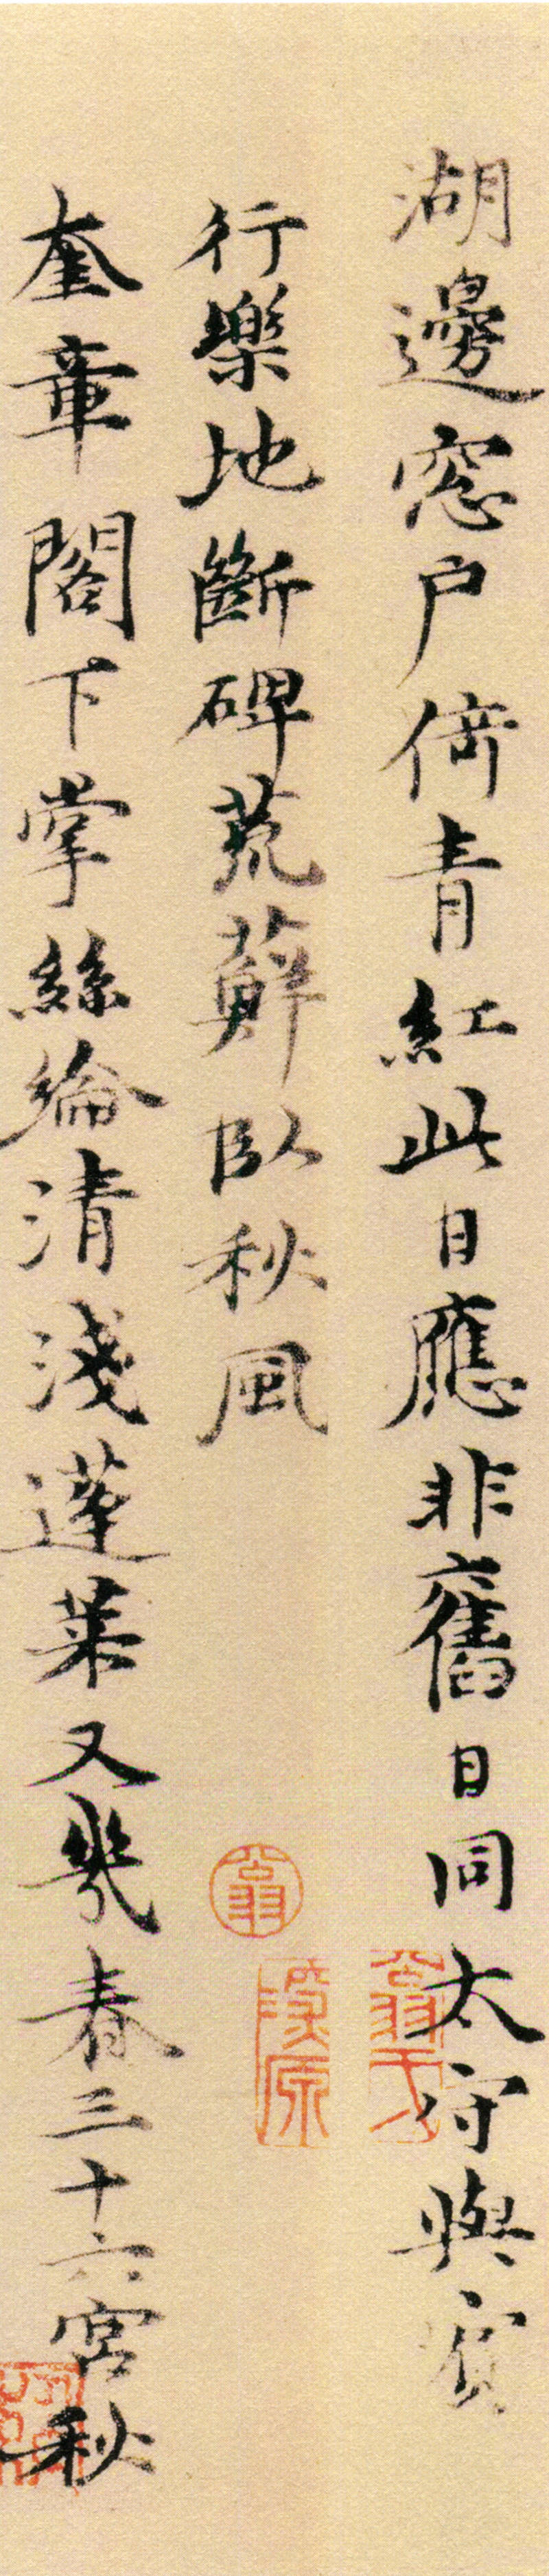 湖邊窓戶倚青紅此日應非舊日同太守與賓
行樂地斷碑荒蘚臥秋風
奎章閣下掌絲綸清淺蓬萊又幾春三十六宮秋